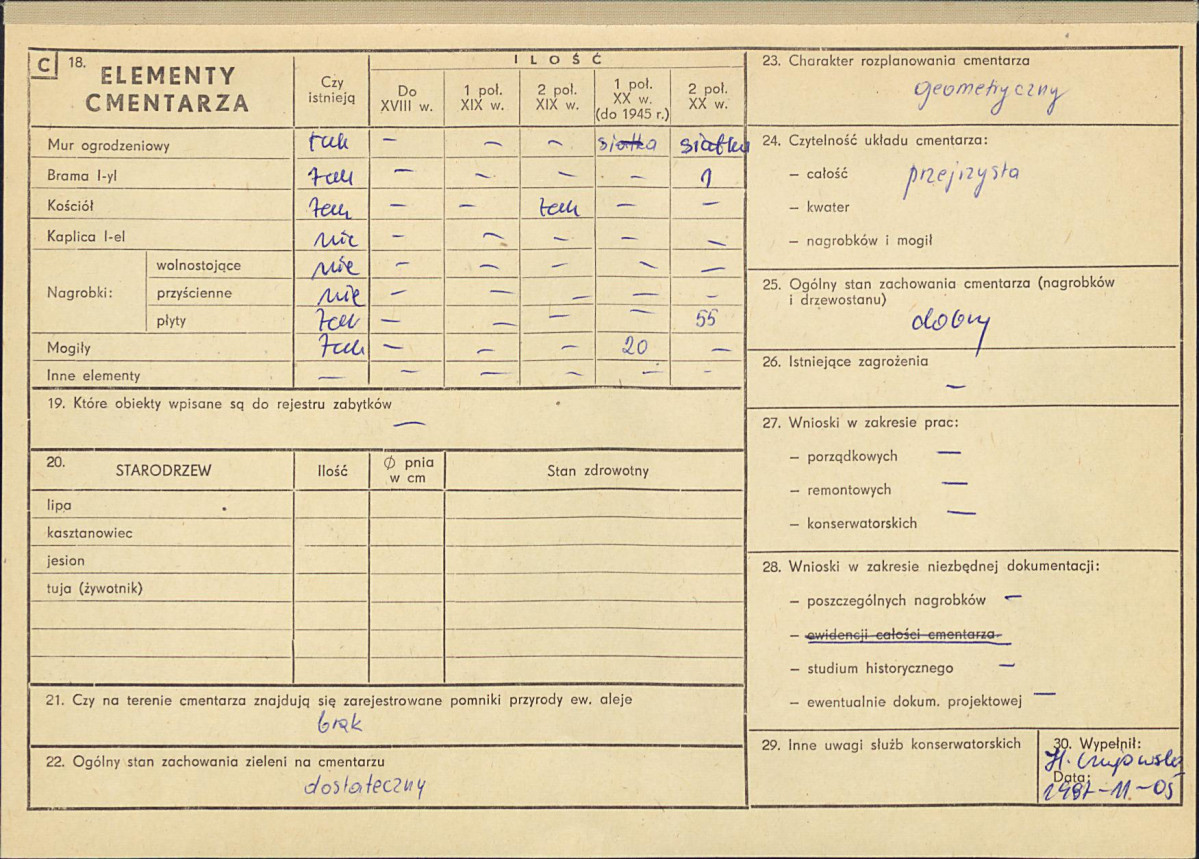 C 18. ELEMENTY CMENTARZA
Czy istnieją
ILOŚĆ
Do XVIII w.
1 poł. XIX w.
2 poł. XIX w.
1 poł. XX w. (do 1945 r.)
2 poł. XX w.
Mur ogrodzeniowy tak – – – siatka siatka
Brama I-yl tak – – – – 1
Kościół tak – – tak – –
Kaplica I-el nie – – – – –
Nagrobki:
wolnostojące nie – – – – –
przyścienne nie – – – – –
płyty tak – – – – 55
Mogiły tak – – – 20 –
Inne elementy – – – – – –
19. Które obiekty wpisane są do rejestru zabytków
–
20. STARODRZEW Ilość Ø pnia w cm Stan zdrowotny
lipa
kasztanowiec
jesion
tuja (żywotnik)
21. Czy na terenie cmentarza znajdują się zarejestrowane pomniki przyrody ew. aleje
brak
22. Ogólny stan zachowania zieleni na cmentarzu
dostateczny
23. Charakter rozplanowania cmentarza
geometryczny
24. Czytelność układu cmentarza:
– całość przejrzysta
– kwater
– nagrobków i mogił
25. Ogólny stan zachowania cmentarza (nagrobków
i drzewostanu)
dobry
26. Istniejące zagrożenia
–
27. Wnioski w zakresie prac:
– porządkowych –
– remontowych –
– konserwatorskich –
28. Wnioski w zakresie niezbędnej dokumentacji:
– poszczególnych nagrobków –
– ewidencji całości cmentarza
– studium historycznego –
– ewentualnie dokum. projektowej –
29. Inne uwagi służb konserwatorskich
30. Wypełnił:
Data:
1987-11-05